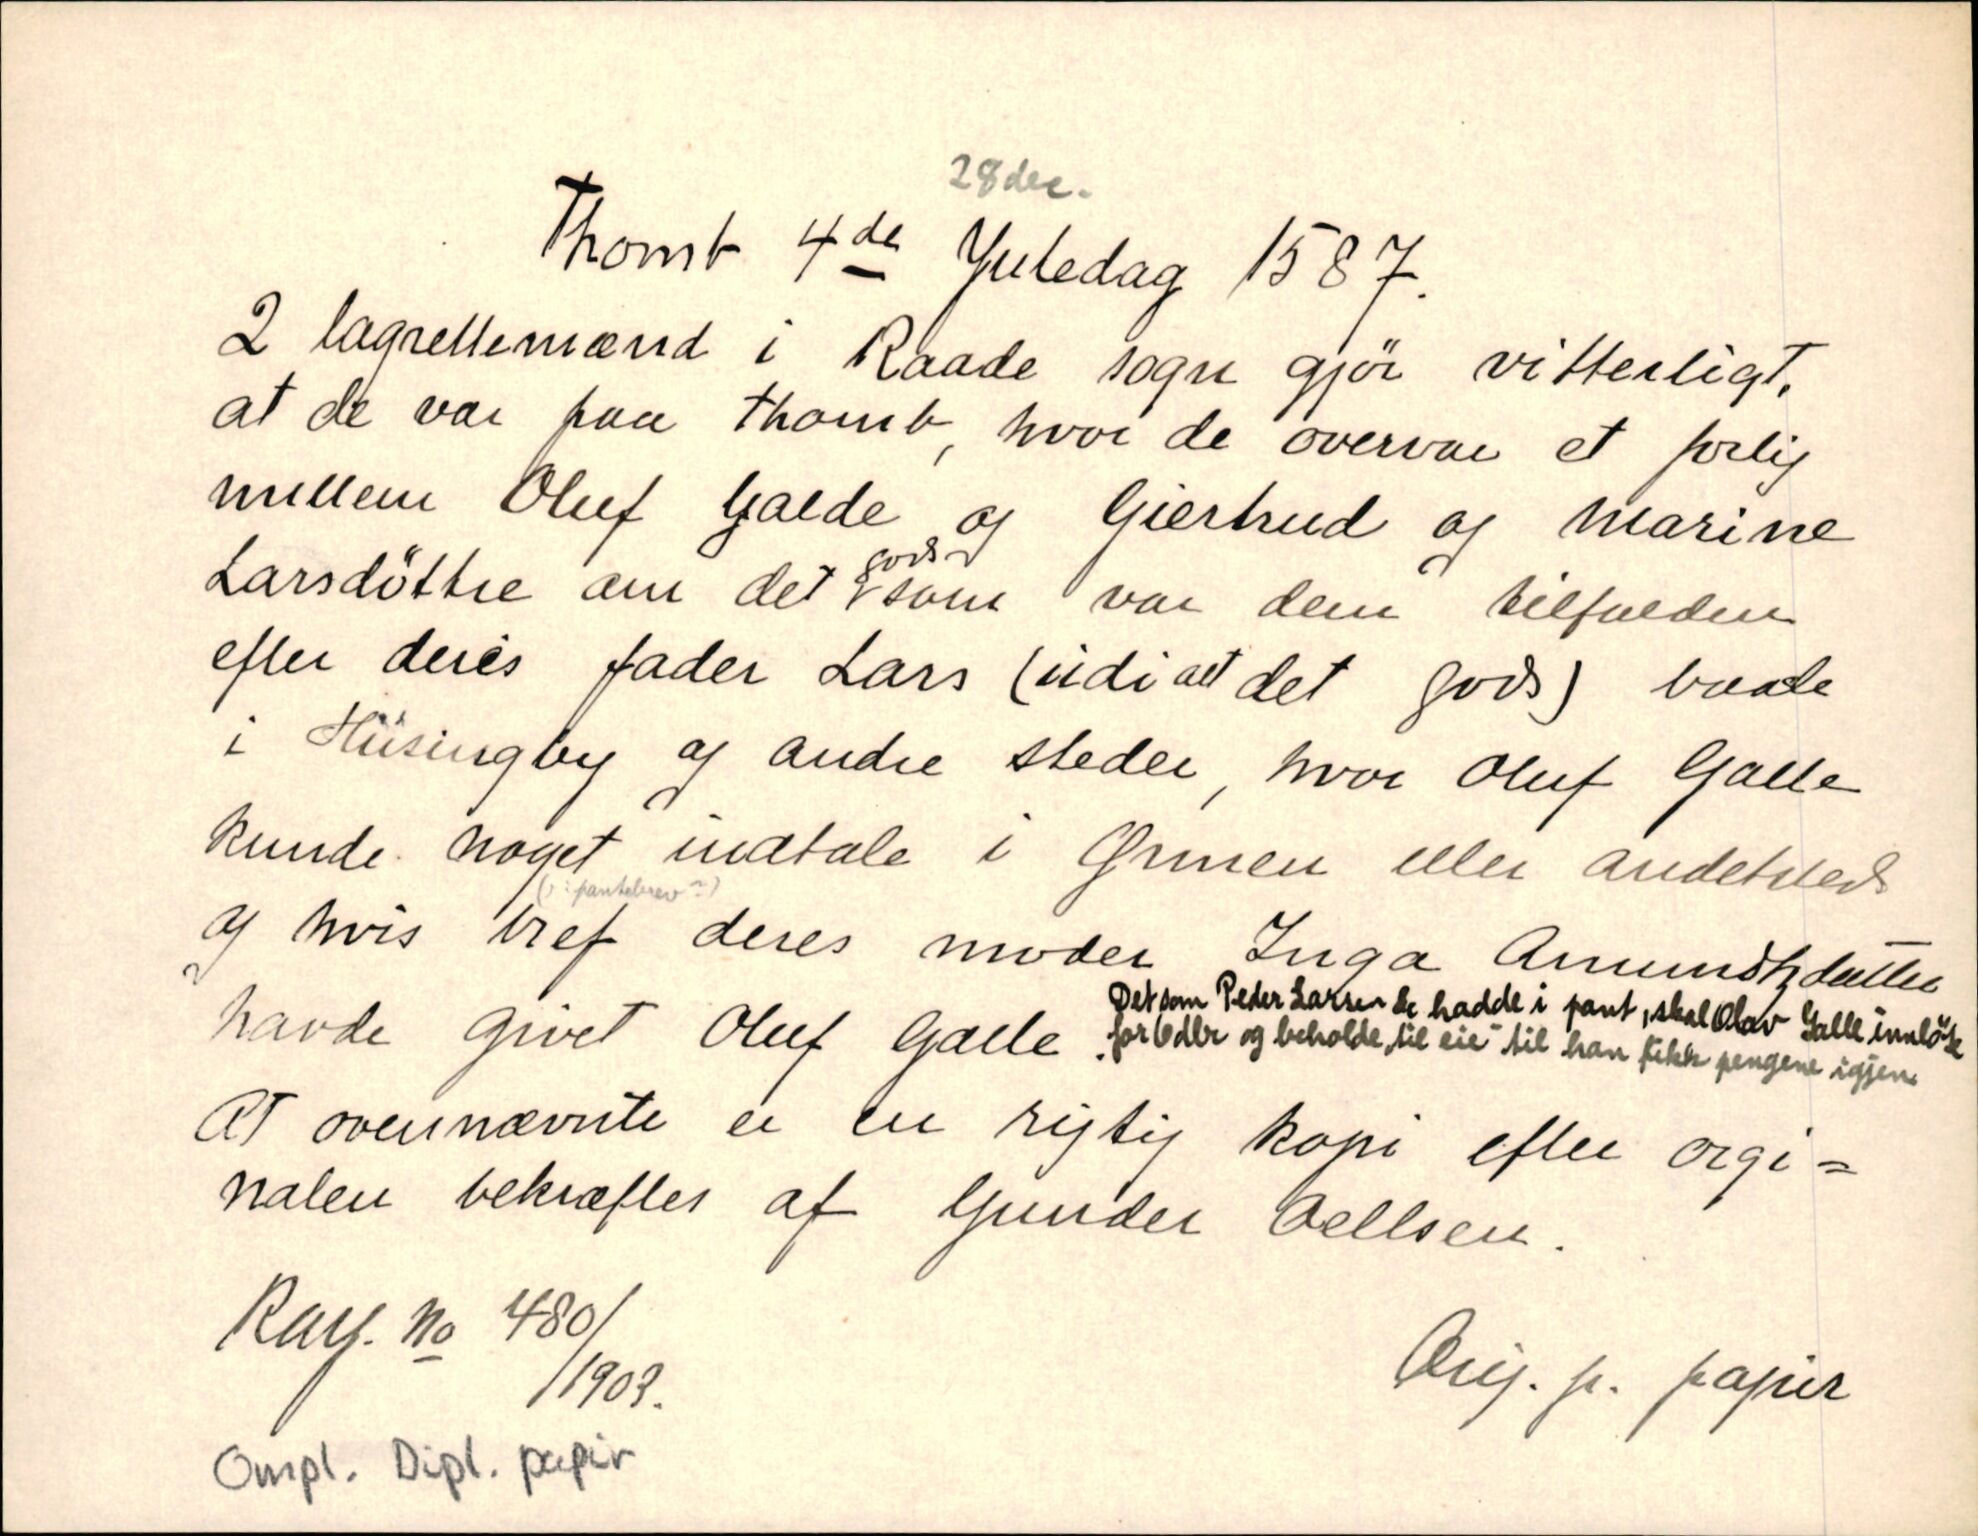 28 dec.
Thomb 4de Juledag 1587.
2 lagrettemænd i Raade sogn gjör vitterligt,
at de var paa Thomb, hvor de overvar et forlig
mellem Oluf Galde og Giertrud og Marine
Larsdöttre om det gods som var dem tilfalden
efter deres fader Lars (udi alt det gods) baade
i Hüsingby og andre steder, hvor Oluf Galle
kunde noget indtale i Grinen eller andetsteds
(ɔ: pantebrev?)
og hvis bref deres moder Inga Amundtzdatter
havde givet Oluf Galle.
Det som Peder Larsen hadde i pant, skal Olav Galle innløse
for 6 dlr og beholde "til eie" til han fikk pengene igjen.
At ovennævnte er en rigtig kopi efter orgi=
nalen bekræftes af Gunder Oellsen.
Kay. No 480/1903.
Orig. p. papir
Ompl. Dipl. papir